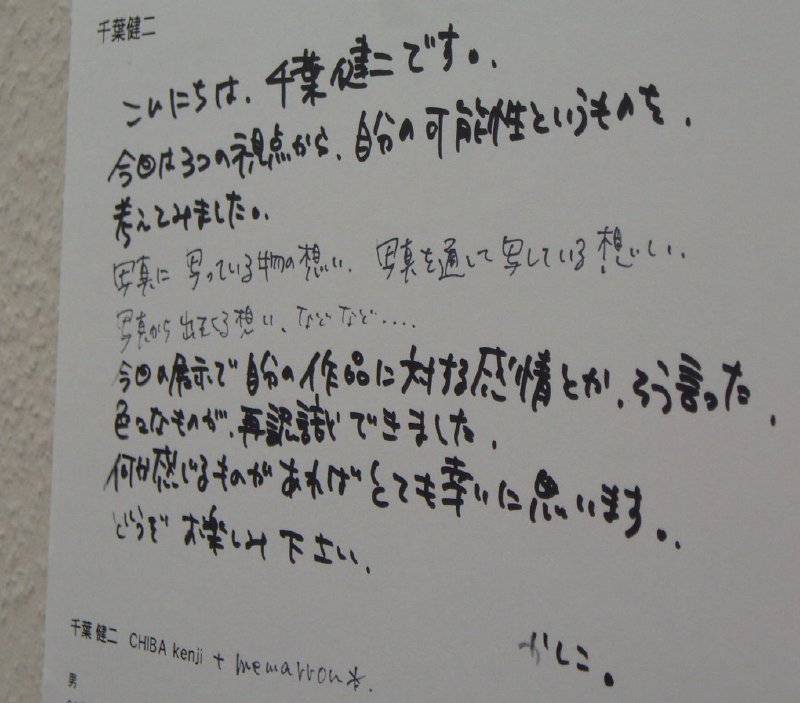 千葉健二
こんにちは、千葉健二です。
今回は3つの視点から、自分の可能性というものを、
考えてみました。
写真に写っている物の想い、写真を通して写している想い、
写真から出てくる想い、などなど....
今回の展示で自分の作品に対する感情とか、そう言った、
色々なものが、再認識できました、
何か感じるものがあればとても幸いに思います。
どうぞお楽しみ下さい、
かしこ。
千葉健二 CHIBA kenji + memarron*.
男